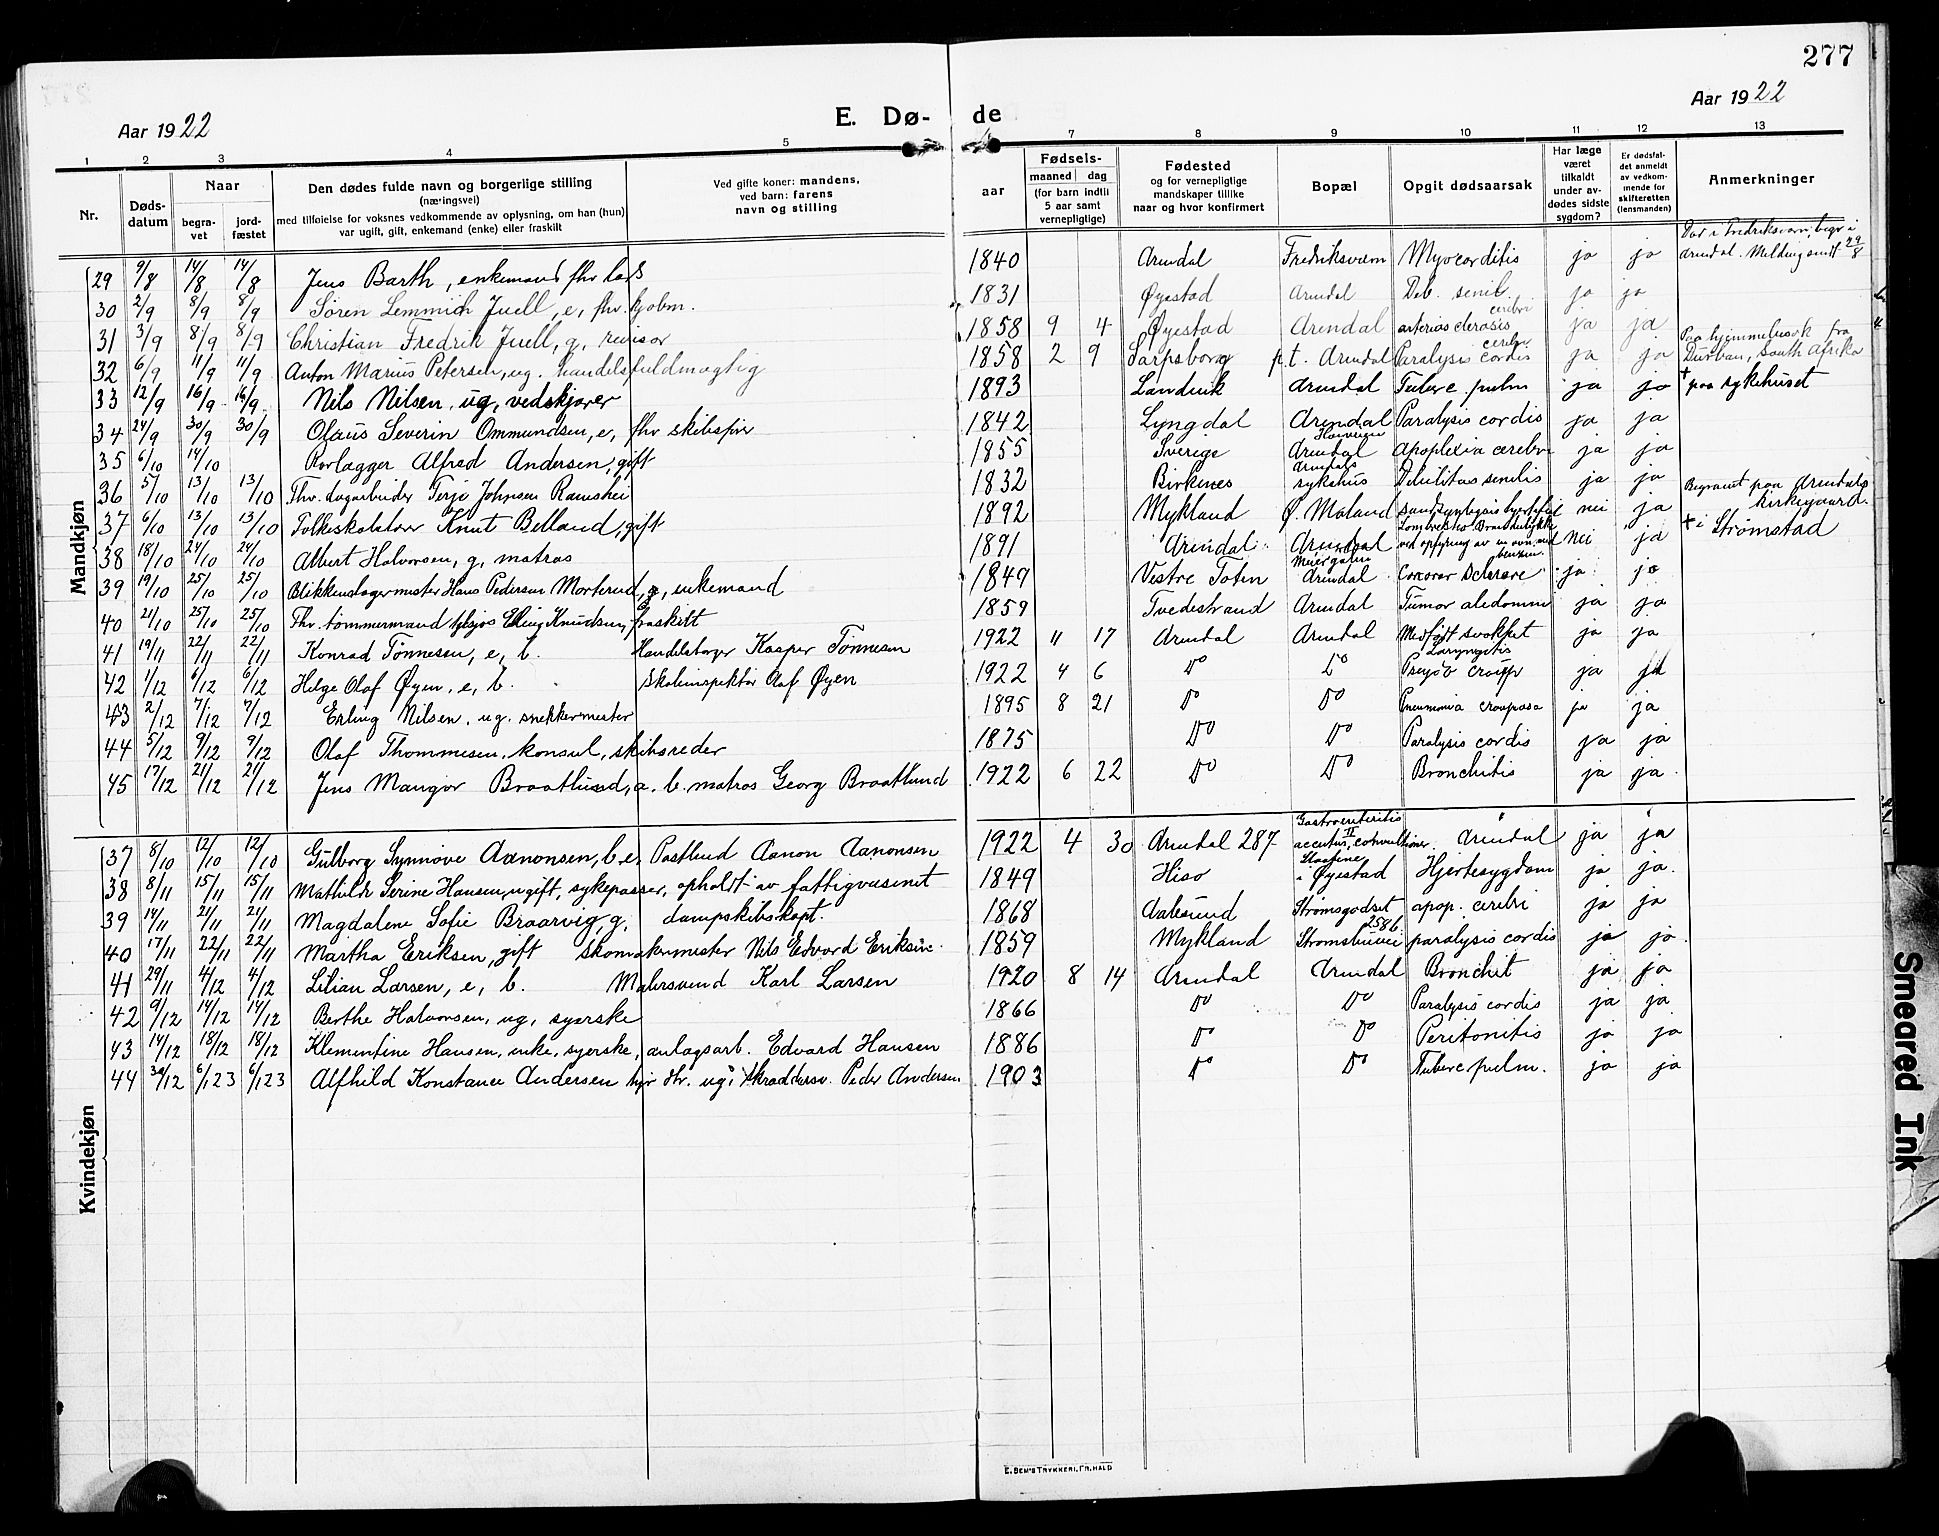 277
Aar 1922
E. Dø-
de
Aar 1922
1 2 3 4 5 7 8 9 10 11 12 13
Nr.
Døds-
datum
Naar
begra-
vet
jord-
fæstet
Den dødes fulde navn og borgerlige stilling
(næringsvei)
med tilføielse for voksnes vedkommende av oplysning, om han (hun)
var ugift, gift, enkemand (enke) eller fraskilt
Ved gifte koner: mandens,
ved barn: farens
navn og stilling
aar
Fødsels-
maaned dag
(for barn indtil
5 aar samt
vernepligtige)
Fødested
og for vernepligtige
mandskaper tillike
naar og hvor konfirmert
Bopæl
Opgit dødsaarsak
Har læge
været
tilkaldt
under av-
dødes sidste
sygdom?
Er dødsfal-
det anmeldt
av vedkom-
mende for
skifteretten
(lensmanden)
Anmerkninger
Mandkjøn
29 9/8 14/8 14/8 Jens Barth, enkemand fhv. 1840 Arendal Fredriksværn Myocarditis ja ja Død i Fredriksværn, begr. i Arendal. Melding sendt 29/8
30 2/9 8/9 8/9 Søren Lemmich Juell, e, fhv. kjøbm. 1831 Øyestad Arendal Deb. senil. ja ja
31 3/9 8/9 8/9 Christian Fredrik Juell, g, revisor 1858 9 4 Øyestad Arendal arteriosclerosis cerebri ja ja
32 6/9 11/9 11/9 Anton Marius Petersen, ug. handelsfuldmægtig 1858 2 9 Sarpsborg p.t. Arendal Paralysis cordis ja ja Paa hjemmebesøk fra Durban, South Afrika
33 12/9 16/9 16/9 Nils Nilsen, ug, vedskjærer 1893 Landvik Arendal Tuberc. pulm ja ja + paa sykehuset
34 24/9 30/9 30/9 Olaus Severin Ommundsen, e, fhv skibsfører 1842 Lyngdal Arendal Paralysis cordis ja ja
35 6/10 14/10 Rørlægger Alfred Andersen, gift 1855 Sverige Arendal apoplexia cerebri ja ja
36 5/10 13/10 13/10 Fhv. dagarbeider Terje Johnsen Rameshei 1832 Birkenes Arendals sykehus Debilitas senilis ja ja
37 6/10 13/10 13/10 Folkeskolelærer Knut Belland, gift 1892 Mykland Ø. Moland nei ja Begravet paa Arendals kirkegaard.
38 18/10 24/10 24/10 Albert Halvorsen, g, matros 1891 Arendal Arendal ved opfyring av en ovn med benzin. nei ja + i Strømstad
39 19/10 25/10 25/10 Blikkenslagermester Hans Pedersen Morterud, enkemand 1849 Vestre Toten Arendal ja ja
40 21/10 25/10 25/10 Fhv. tømmermand Elling Knudsen, fraskilt 1859 Tvedestrand Arendal Tumor abdomin ja ja
41 19/11 22/11 22/11 Konrad Tønnesen, e, b. Handelsborger Kasper Tønnesen 1922 11 17 Arendal Arendal Medfødt svakhet ja ja
42 1/12 6/12 6/12 Helge Olaf Øyen, e, b. Skoleinspektør Olaf Øyen 1922 4 6 Do Do Laryngitis croup ja ja
43 2/12 7/12 7/12 Erling Nilsen, ug. snekkermester 1895 8 21 Do Do Pneumonia crouposa ja ja
44 5/12 9/12 9/12 Olaf Thommesen, konsul, skibsreder 1875 Do Do Paralysis cordis ja ja
45 17/12 21/12 21/12 Jens Mangor Braatlund, a. b. matros Georg Braatlund 1922 6 22 Do Do Bronchitis ja ja
Kvindekjøn
37 8/10 12/10 12/10 Gulborg Synnøve Aanonsen, b. e, Postbud Aanon Aanonsen 1922 4 30 Arendal 287 Gastroenteritis accutus, convultioner. Arendal ja ja
38 8/11 15/11 15/11 Mathilde Serine Hansen, ugift, sykepasser, opholdt av fattigvæsenet 1849 Hisø i Øyestad Hjertesygdom ja ja.
39 14/11 21/11 21/11 Magdalene Sofie Braarvig, g, dampskibskapt. 1868 Aalesund Strømsgodset apop. cerebri ja ja
40 17/11 22/11 22/11 Martha Eriksen, gift skomakermester Nils Edvard Eriksen. 1859 Mykland Strømsbuvei 2586 paralysis cordis ja ja.
41 29/11 4/12 4/12 Lilian Larsen, e, b. Malersvend Karl Larsen 1920 8 14 Arendal Arendal Bronchit ja ja
42 9/12 14/12 14/12 Berthe Halvorsen, ug, syerske 1866 Do Do Paralysis cordis ja ja
43 14/12 18/12 18/12 Klementine Hansen, enke, syerske, anlægsarb. Edvard Hansen 1886 Do Do Peritonitis ja ja
44 30/12 6/123 6/123 Alfhild Konstance Andersen ug. skræddersv. Peder Andersen 1903 Do Do Tuberc pulm. ja ja
E. SEM'S TRYKKERI, FR.HALD
Smeared Ink